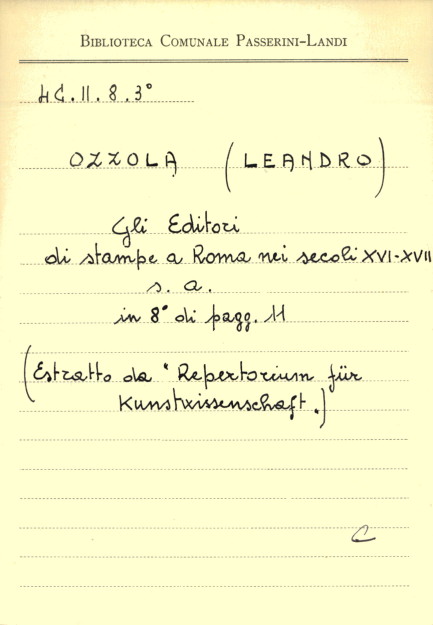 BIBLIOTECA COMUNALE PASSERINI-LANDI
4G.II.8.3°
OZZOLA (LEANDRO)
Gli Editori
di stampe a Roma nei secoli XVI-XVII
s. a.
in 8° di pagg. 11
(Estratto da "Repertorium für
Kunstwissenschaft.)
C